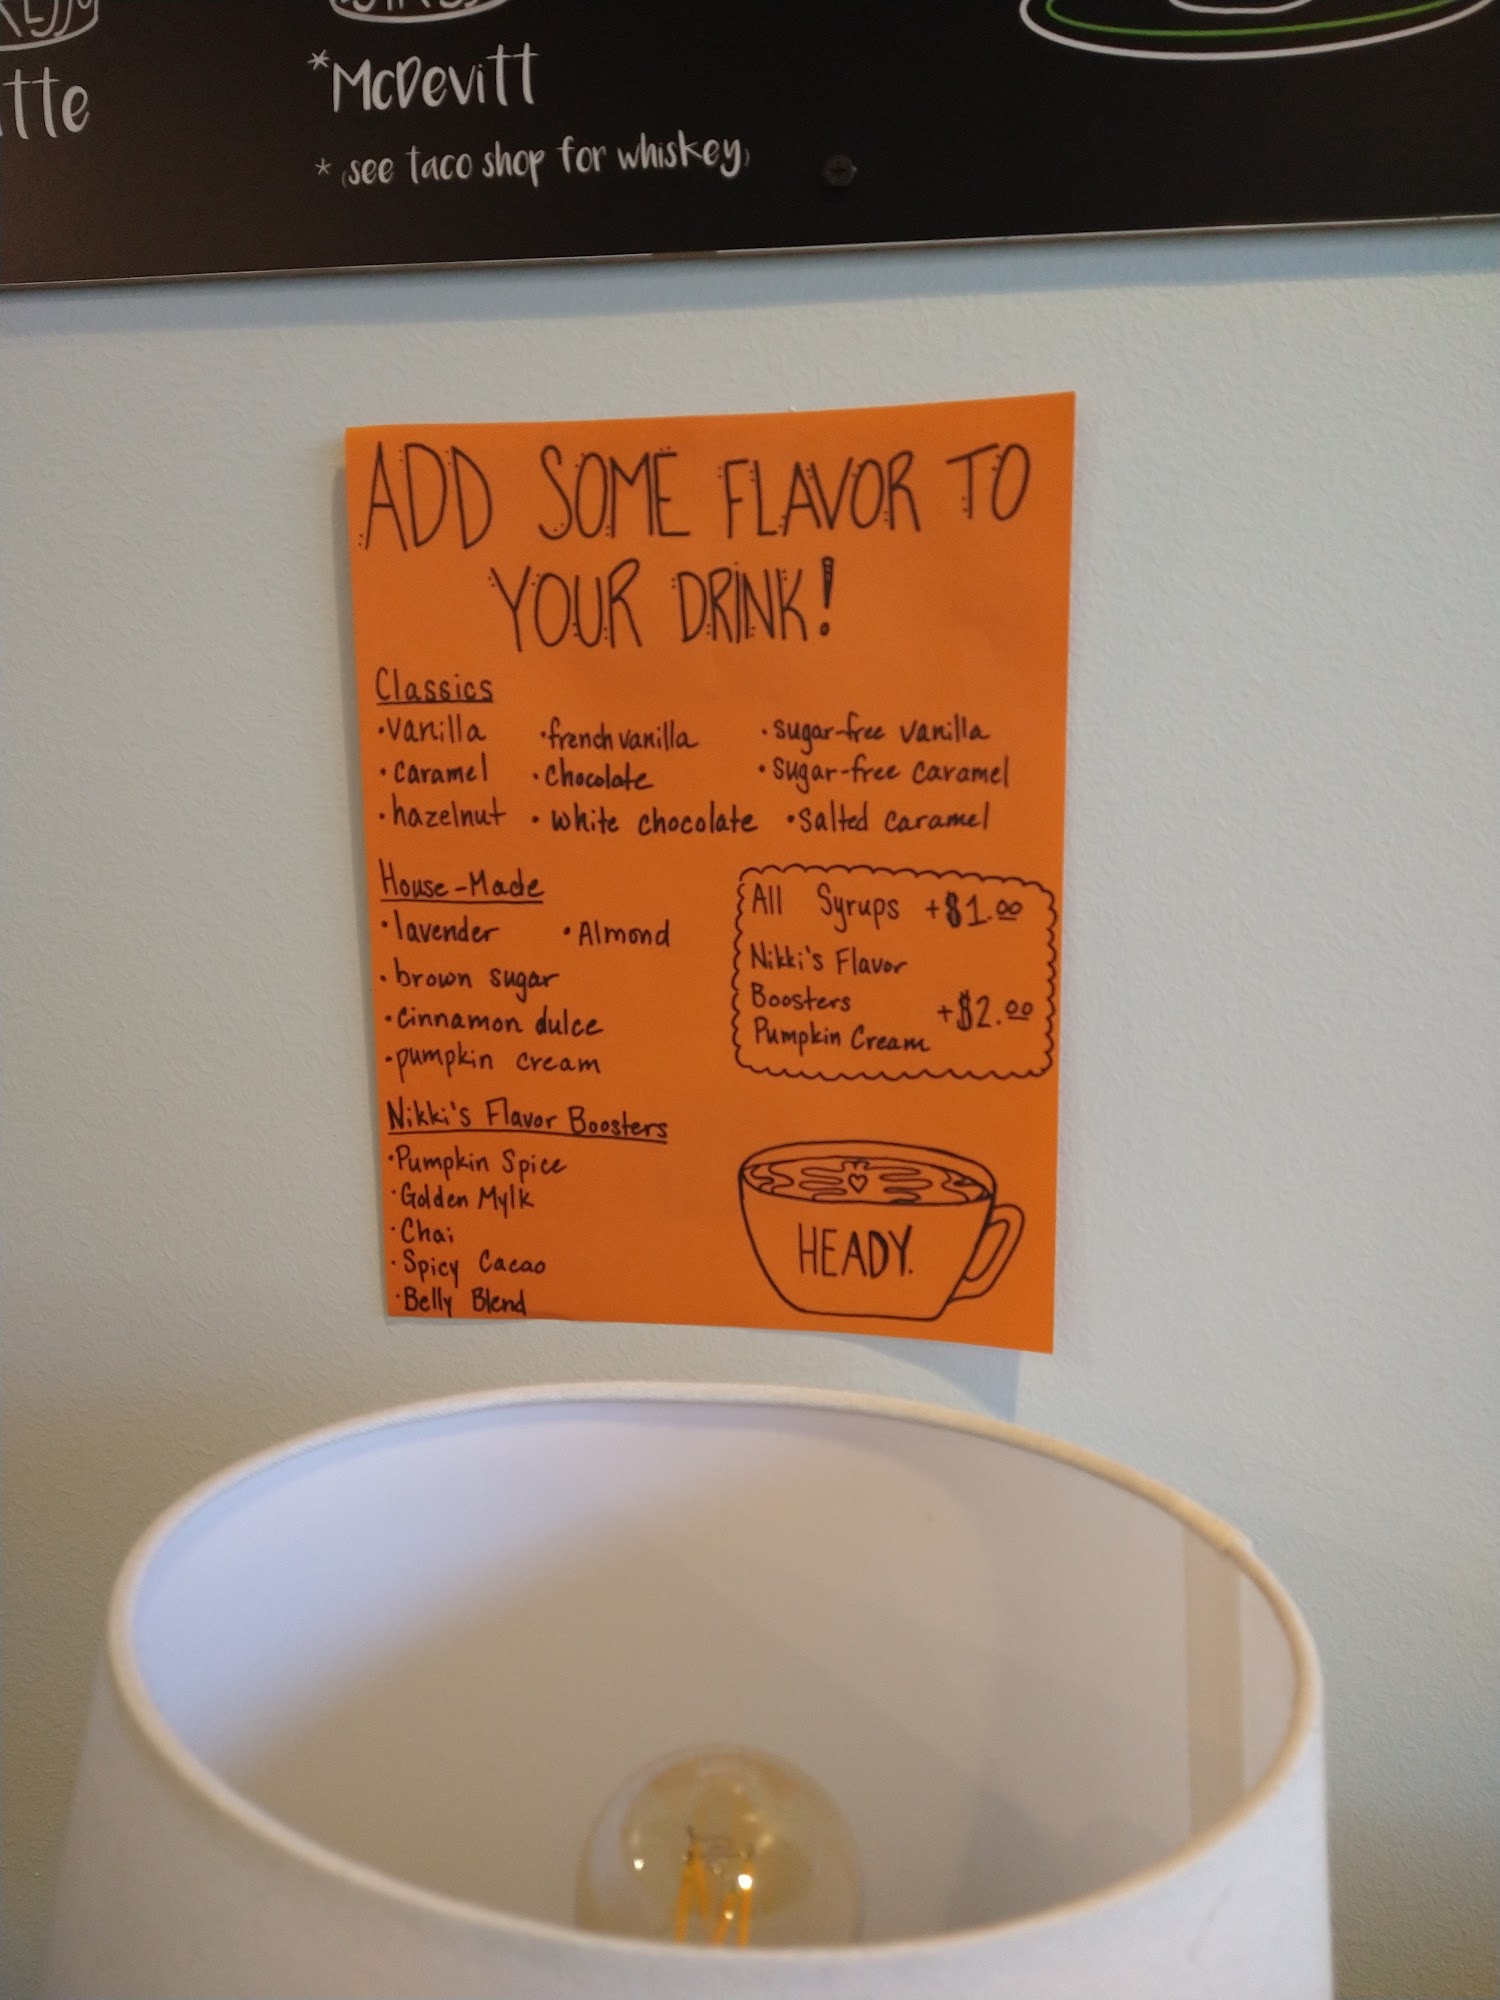 tte
*McDevitt
* (see taco shop for whiskey)
ADD SOME FLAVOR TO
YOUR DRINK!
Classics
•vanilla •french vanilla •sugar-free vanilla
•caramel •chocolate •sugar-free caramel
•hazelnut •white chocolate •salted caramel
House-Made
•lavender •Almond
•brown sugar
•cinnamon dulce
•pumpkin cream
All Syrups +$1.00
Nikki's Flavor
Boosters +$2.00
Pumpkin Cream
Nikki's Flavor Boosters
•Pumpkin Spice
•Golden Mylk
•Chai
•Spicy Cacao
•Belly Blend
HEADY.